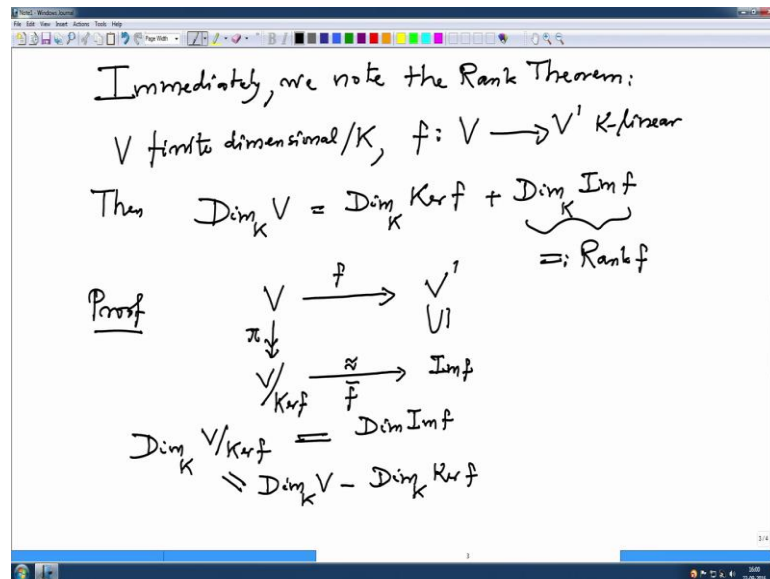 Note1 - Windows Journal
File Edit View Insert Actions Tools Help
Page Width
B I
Immediately, we note the Rank Theorem:
V finite dimensional/K, f: V ⟶ V' K-linear
Then Dim_K V = Dim_K Ker f + Dim_K Im f
=: Rank f
Proof V ⟶ V'
f
π ↓ U|
V/Ker f ⟶ Im f
≈
f̄
Dim_K V/Ker f = Dim Im f
\\ Dim_K V − Dim_K Ker f
3/4
3
16:00